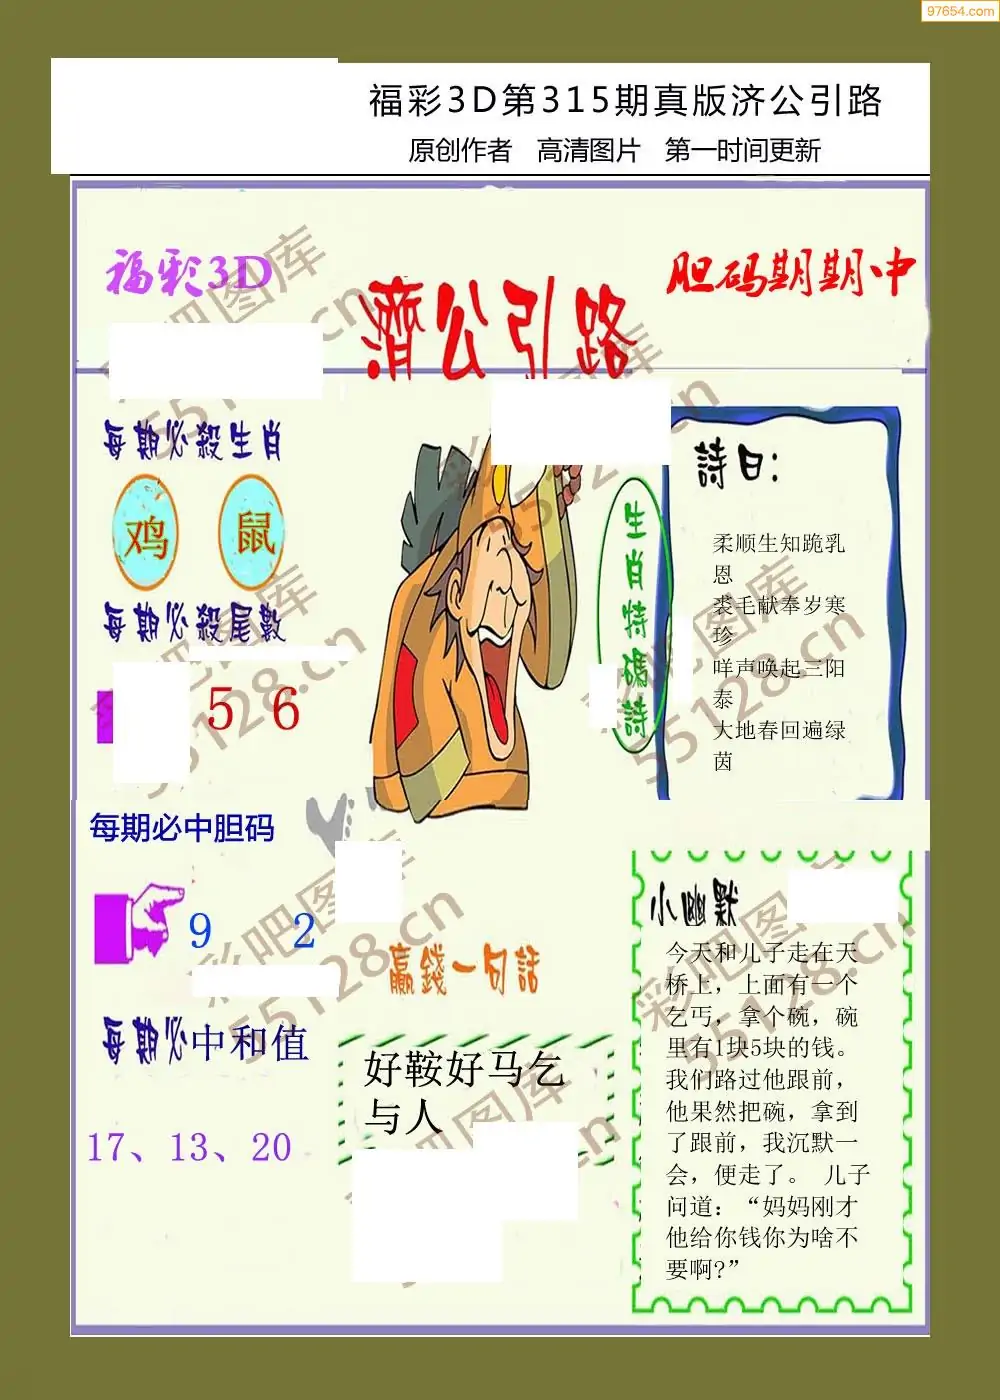 97654.com
福彩3D第315期真版济公引路
原创作者 高清图片 第一时间更新
福彩3D
濟公引路
胆码期期中
每期必殺生肖
鸡 鼠
每期必殺尾數
5 6
生肖特碼詩
詩曰：
柔顺生知跪乳
恩
裘毛献奉岁寒
珍
咩声唤起三阳
泰
大地春回遍绿
茵
每期必中胆码
9 2
每期必中和值
17、13、20
贏錢一句話
好鞍好马乞
与人
小幽默
今天和儿子走在天
桥上，上面有一个
乞丐，拿个碗，碗
里有1块5块的钱。
我们路过他跟前，
他果然把碗，拿到
了跟前，我沉默一
会，便走了。 儿子
问道：“妈妈刚才
他给你钱你为啥不
要啊?”
彩吧图库
55128.cn